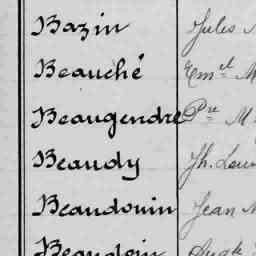 Bazin Jules
Beauché Em.el M
Beaugendre Pre M
Beaudy Jh. Loui
Beaudouin Jean M
Beaudoin